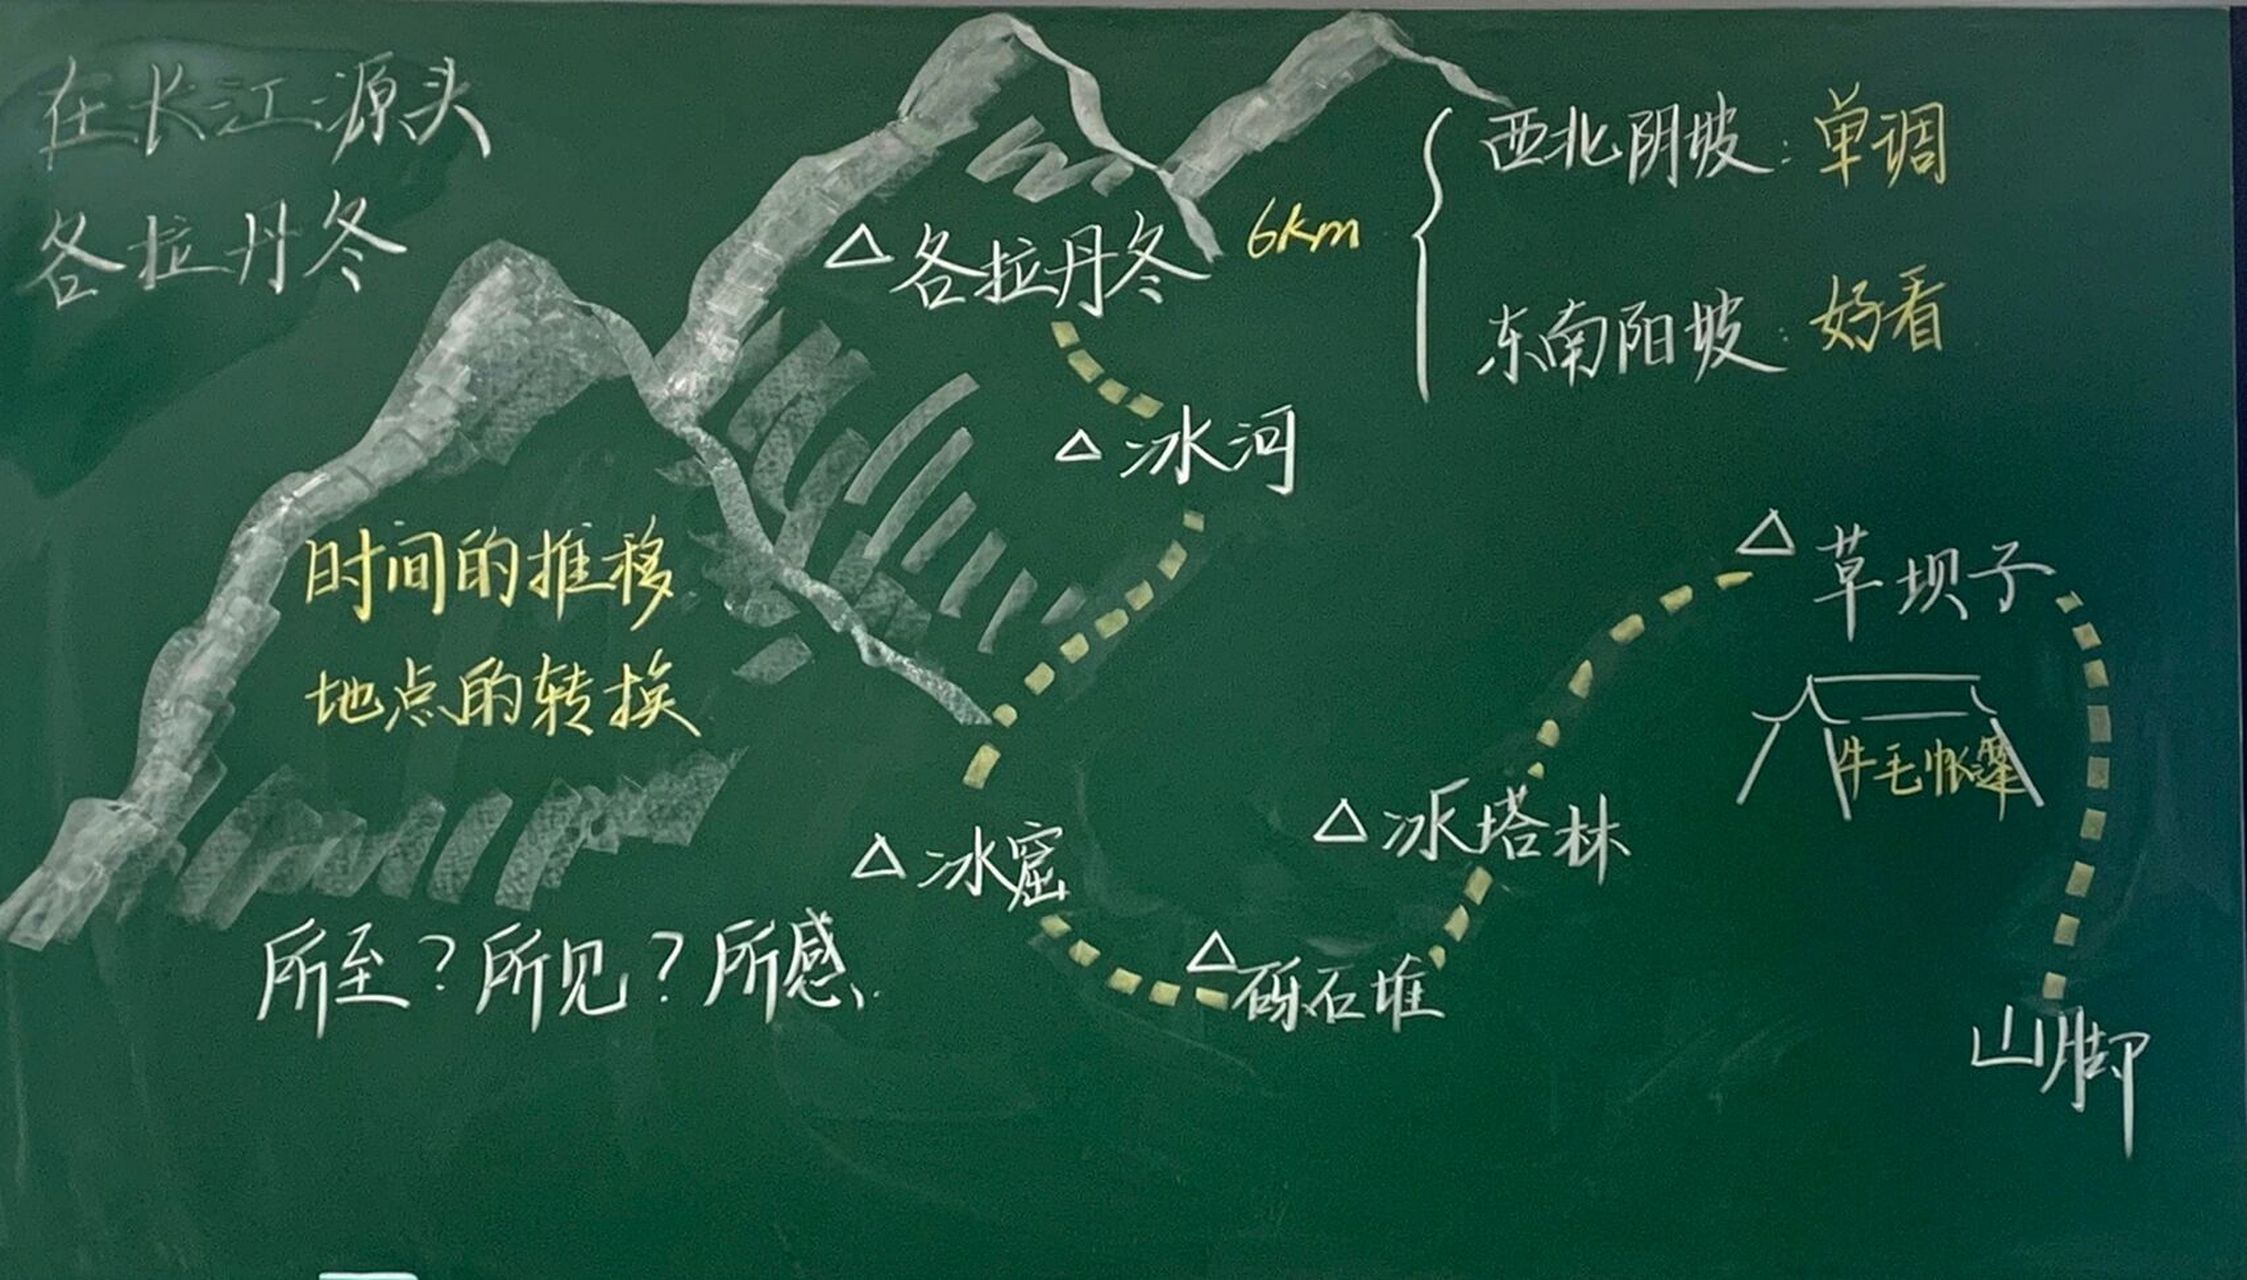 在长江源头
各拉丹冬
西北阴坡：单调
△各拉丹冬 6km
东南阳坡：好看
△冰河
时间的推移
地点的转换
△草坝子
牛毛帐篷
△冰塔林
△冰窟
所至？所见？所感
△砾石堆
山脚